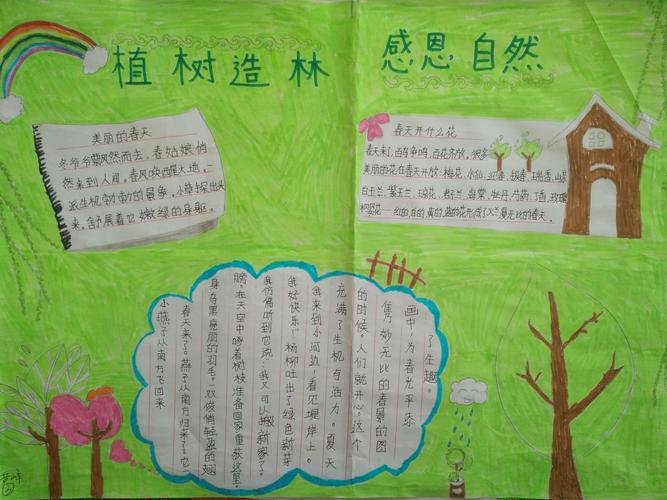 植树造林 感恩自然
美丽的春天
冬爷爷飘然而去，春姑娘悄
然来到人间，春风唤醒大地，一
派生机勃勃的景象，小草探出头
来，舒展着它嫩绿的身躯。
春天开什么花
春天来了，百鸟争鸣，百花齐放，很多
美丽的花在春天开放：梅花，水仙，迎春，报春，瑞香，山茶
白玉兰，紫玉兰，琼花，君子兰，海棠，牡丹，芍药，丁香，玫瑰
红的白的黄的蓝的花形成了烂漫无比的春天。
小燕子从南方飞回来
春天来了。燕子从南方归来了。它一
身乌黑亮丽的羽毛。一双俊俏轻盈的翅
膀。在天空中 着树枝准备回家重获这里。
我仿佛听到它说："我又可以搬新家了。
我好快乐！"杨柳吐出了绿色新芽
我来到小河边，看见堤岸上。夏天
充满了生机与活力。
的时候。人们就开心。这个
隽妙无比的春景的图
画中，为春光平添
了生趣。